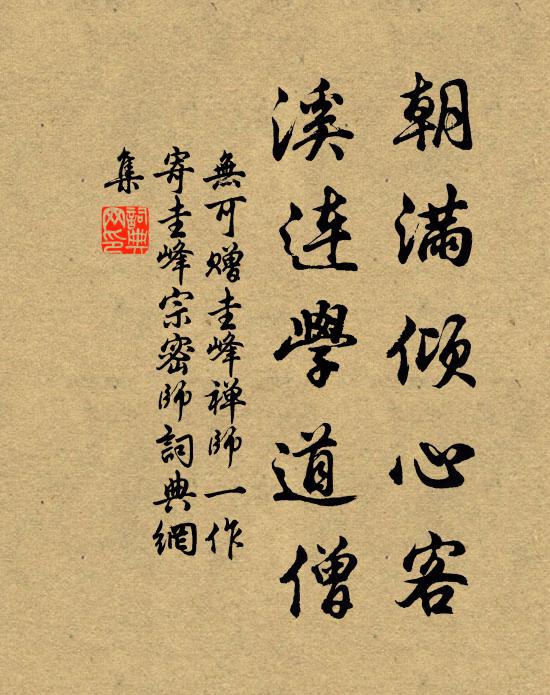 朝满倾心客
溪连學道僧
無可赠圭峰禅师一作
寄圭峰宗密师詞典網
集
詞典網印